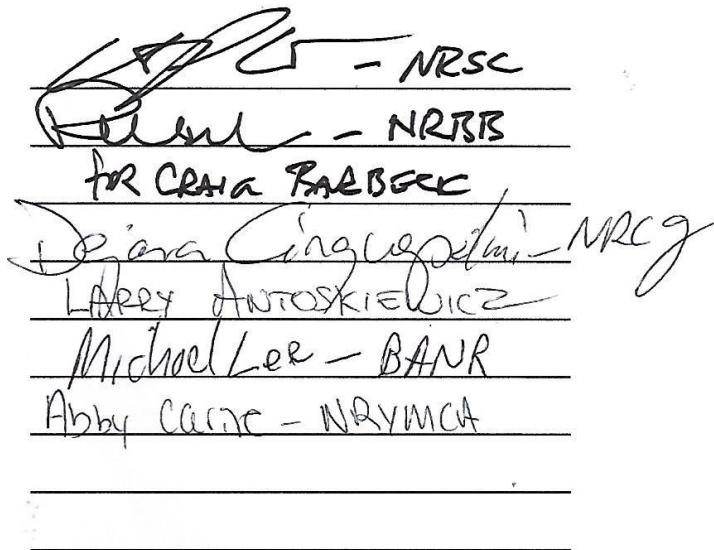 - NRSC
- NRBB
FOR CRAIG BARBECK
Dejana - NRCG
LARRY ANTOSKIEWICZ
Michael Lee - BANR
Abby - NRYMCA